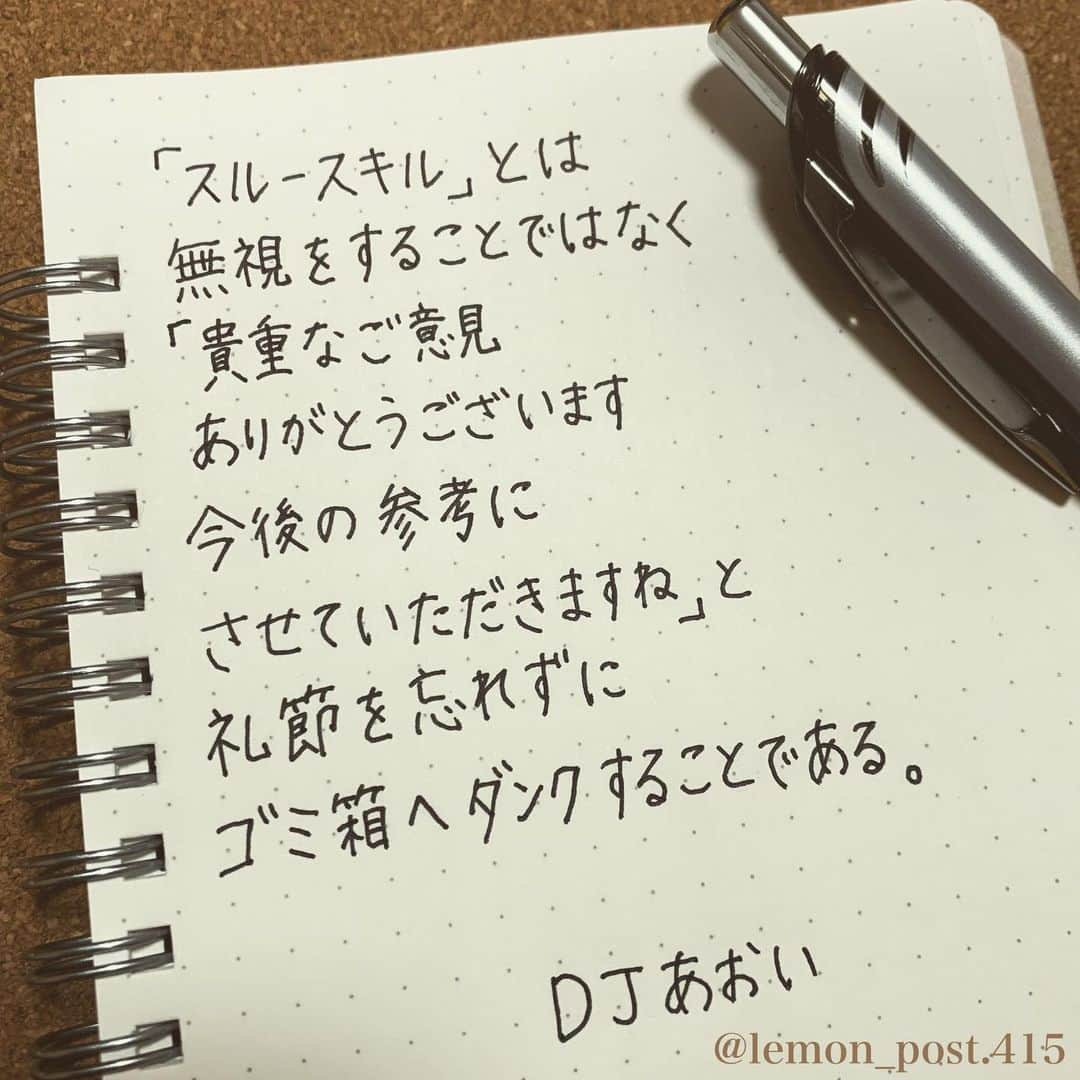 「スルースキル」とは
無視をすることではなく
「貴重なご意見
ありがとうございます
今後の参考に
させていただきますね」と
礼節を忘れずに
ゴミ箱へダンクすることである。
DJあおい
@lemon_post.415